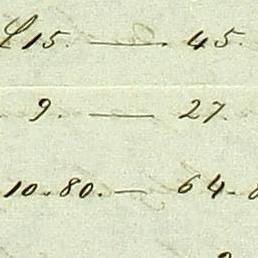 £15. — 45.
9. — 27.
10.80. — 64.8